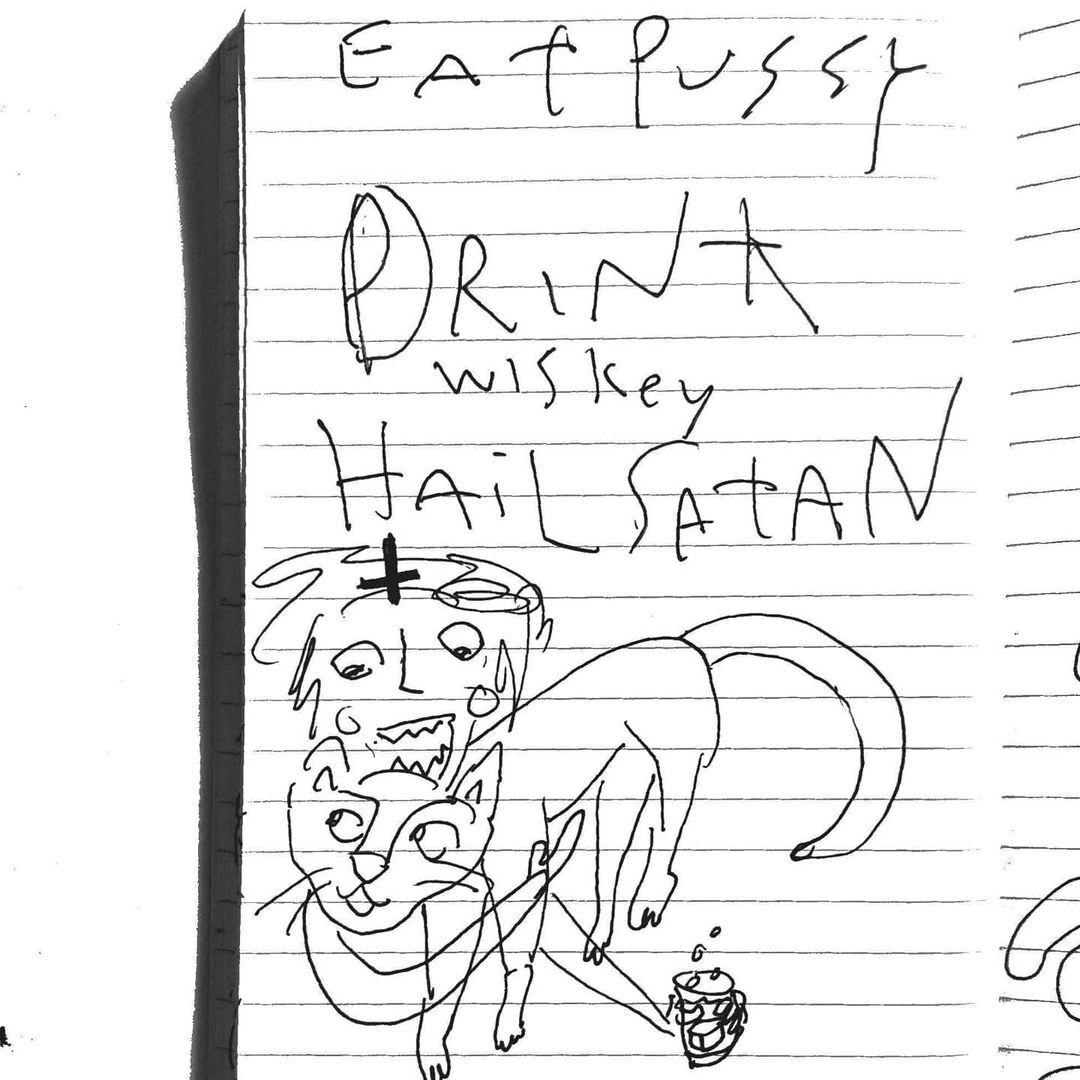 EAt PUSSY
DRINK
WISKey
HAiL SAtAN